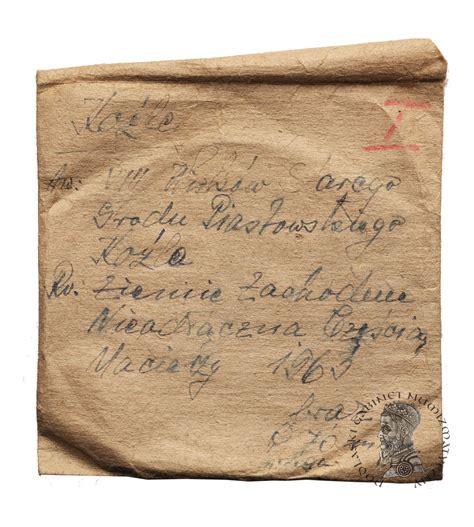 Koźle
I
Aw: VIII Wieków Starego
Grodu Piastowskiego
Koźla
Rv. Ziemie Zachodnie
Nieodłączna Częścią
Macierzy 1963
GABINET NUMIZMATYCZNY